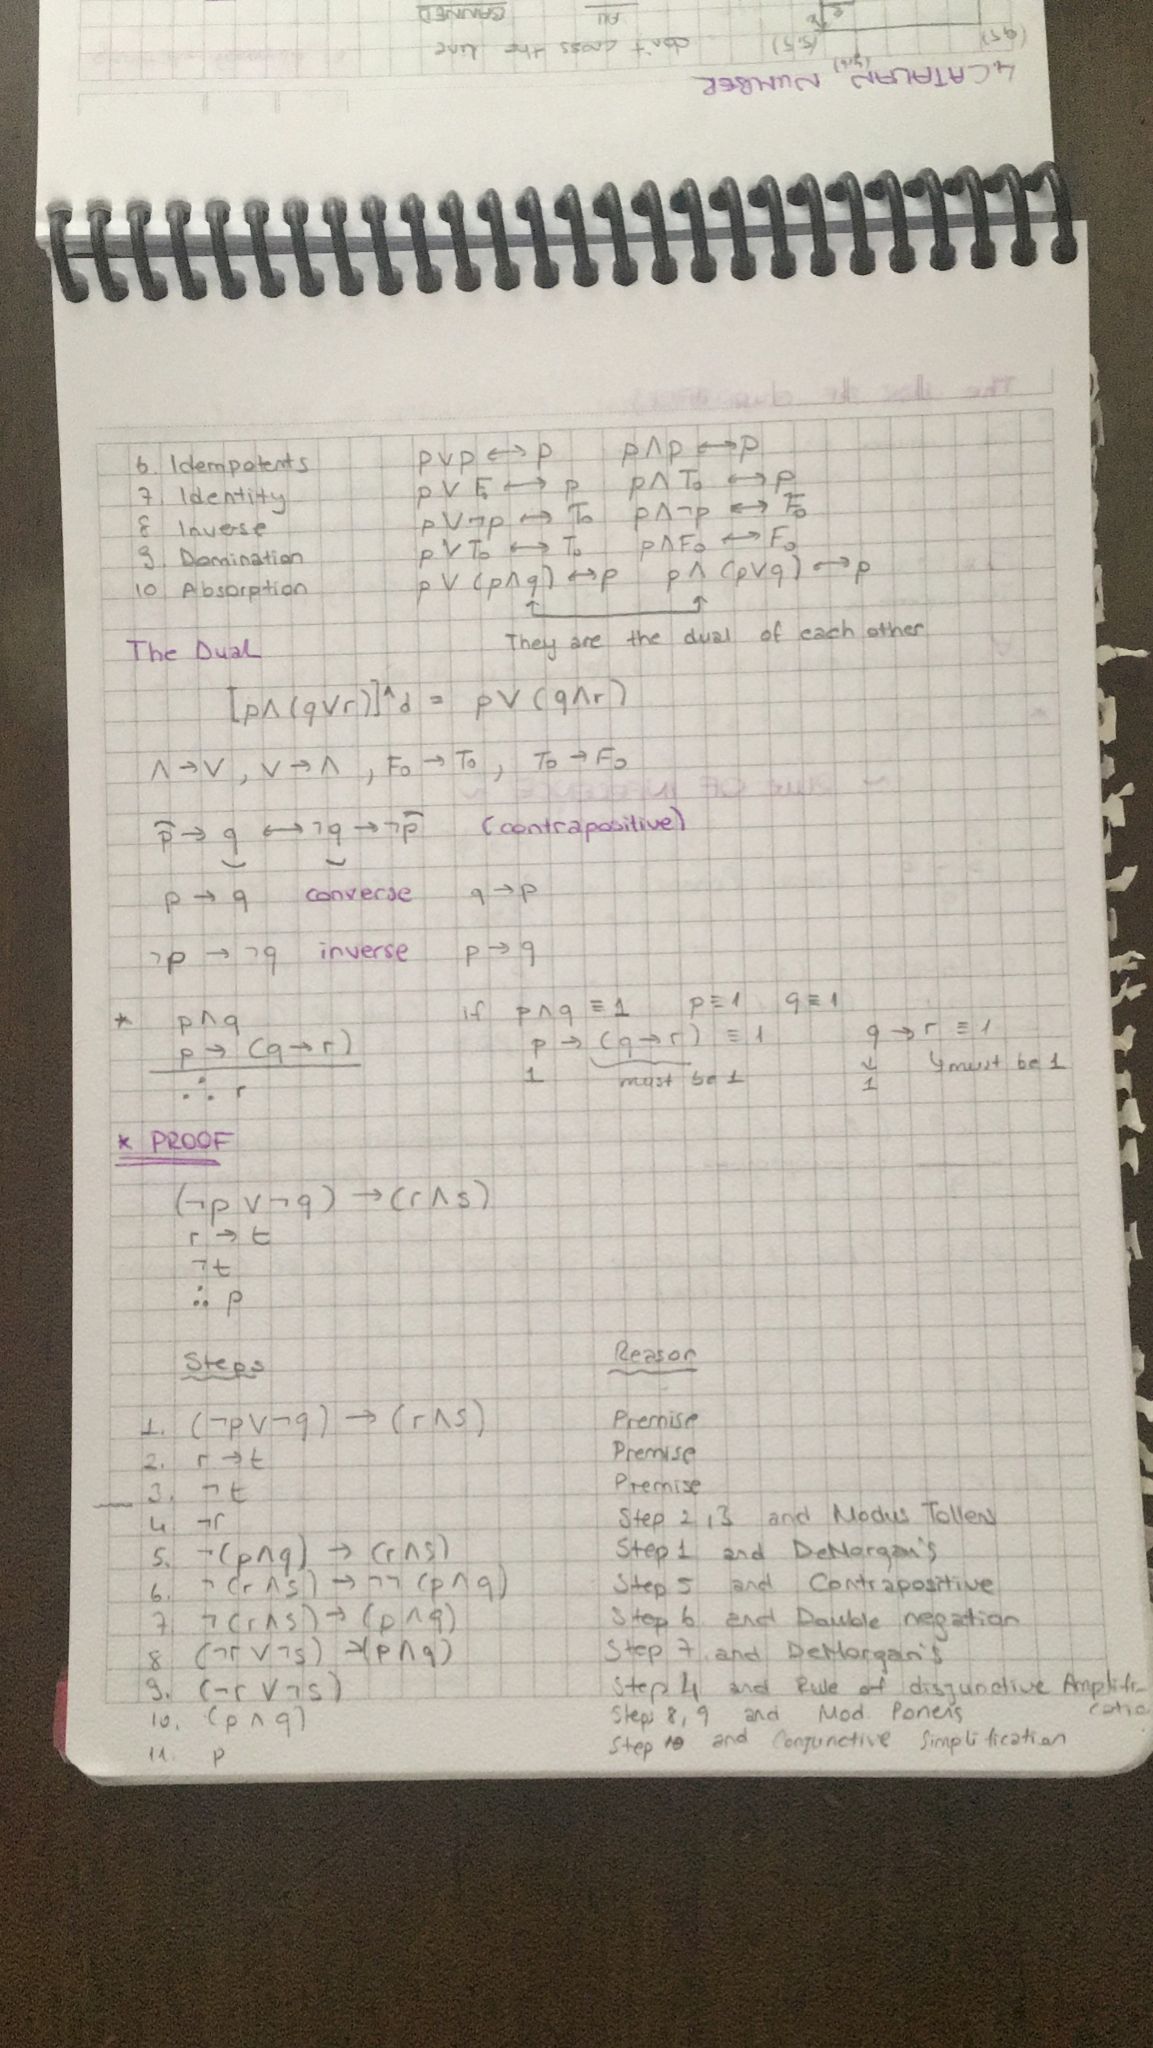 4. CATALAN NUMBER
don't cross the line
6. Idempotents p∨p ↔ p p∧p ↔ p
7. Identity p∨F₀ ↔ p p∧T₀ ↔ p
8 Inverse p∨¬p ↔ T₀ p∧¬p ↔ F₀
9 Domination p∨T₀ ↔ T₀ p∧F₀ ↔ F₀
10 Absorption p∨(p∧q) ↔ p p∧(p∨q) ↔ p
They are the dual of each other
The Dual
[p∧(q∨r)]^d = p∨(q∧r)
∧→∨, ∨→∧, F₀→T₀, T₀→F₀
p → q ↔ ¬q → ¬p (contrapositive)
p → q converse q → p
¬p → ¬q inverse p → q
* p∧q if p∧q ≡ 1 p≡1 q≡1
p → (q→r) p → (q→r) ≡ 1 q → r ≡ 1
∴ r 1 must be 1 1 ↳must be 1
* PROOF
(¬p∨¬q) → (r∧s)
r → t
¬t
∴ p
Steps Reason
1. (¬p∨¬q) → (r∧s) Premise
2. r → t Premise
3. ¬t Premise
4 ¬r Step 2,3 and Modus Tollens
5. ¬(p∧q) → (r∧s) Step 1 and DeMorgan's
6. ¬(r∧s) → ¬¬(p∧q) Step 5 and Contrapositive
7 ¬(r∧s) → (p∧q) Step 6 and Double negation
8 (¬r∨¬s) → (p∧q) Step 7 and DeMorgan's
9. (¬r∨¬s) Step 4 and Rule of disjunctive Amplification
10. (p∧q) Step 8, 9 and Mod. Ponens
11. p Step 10 and Conjunctive Simplification